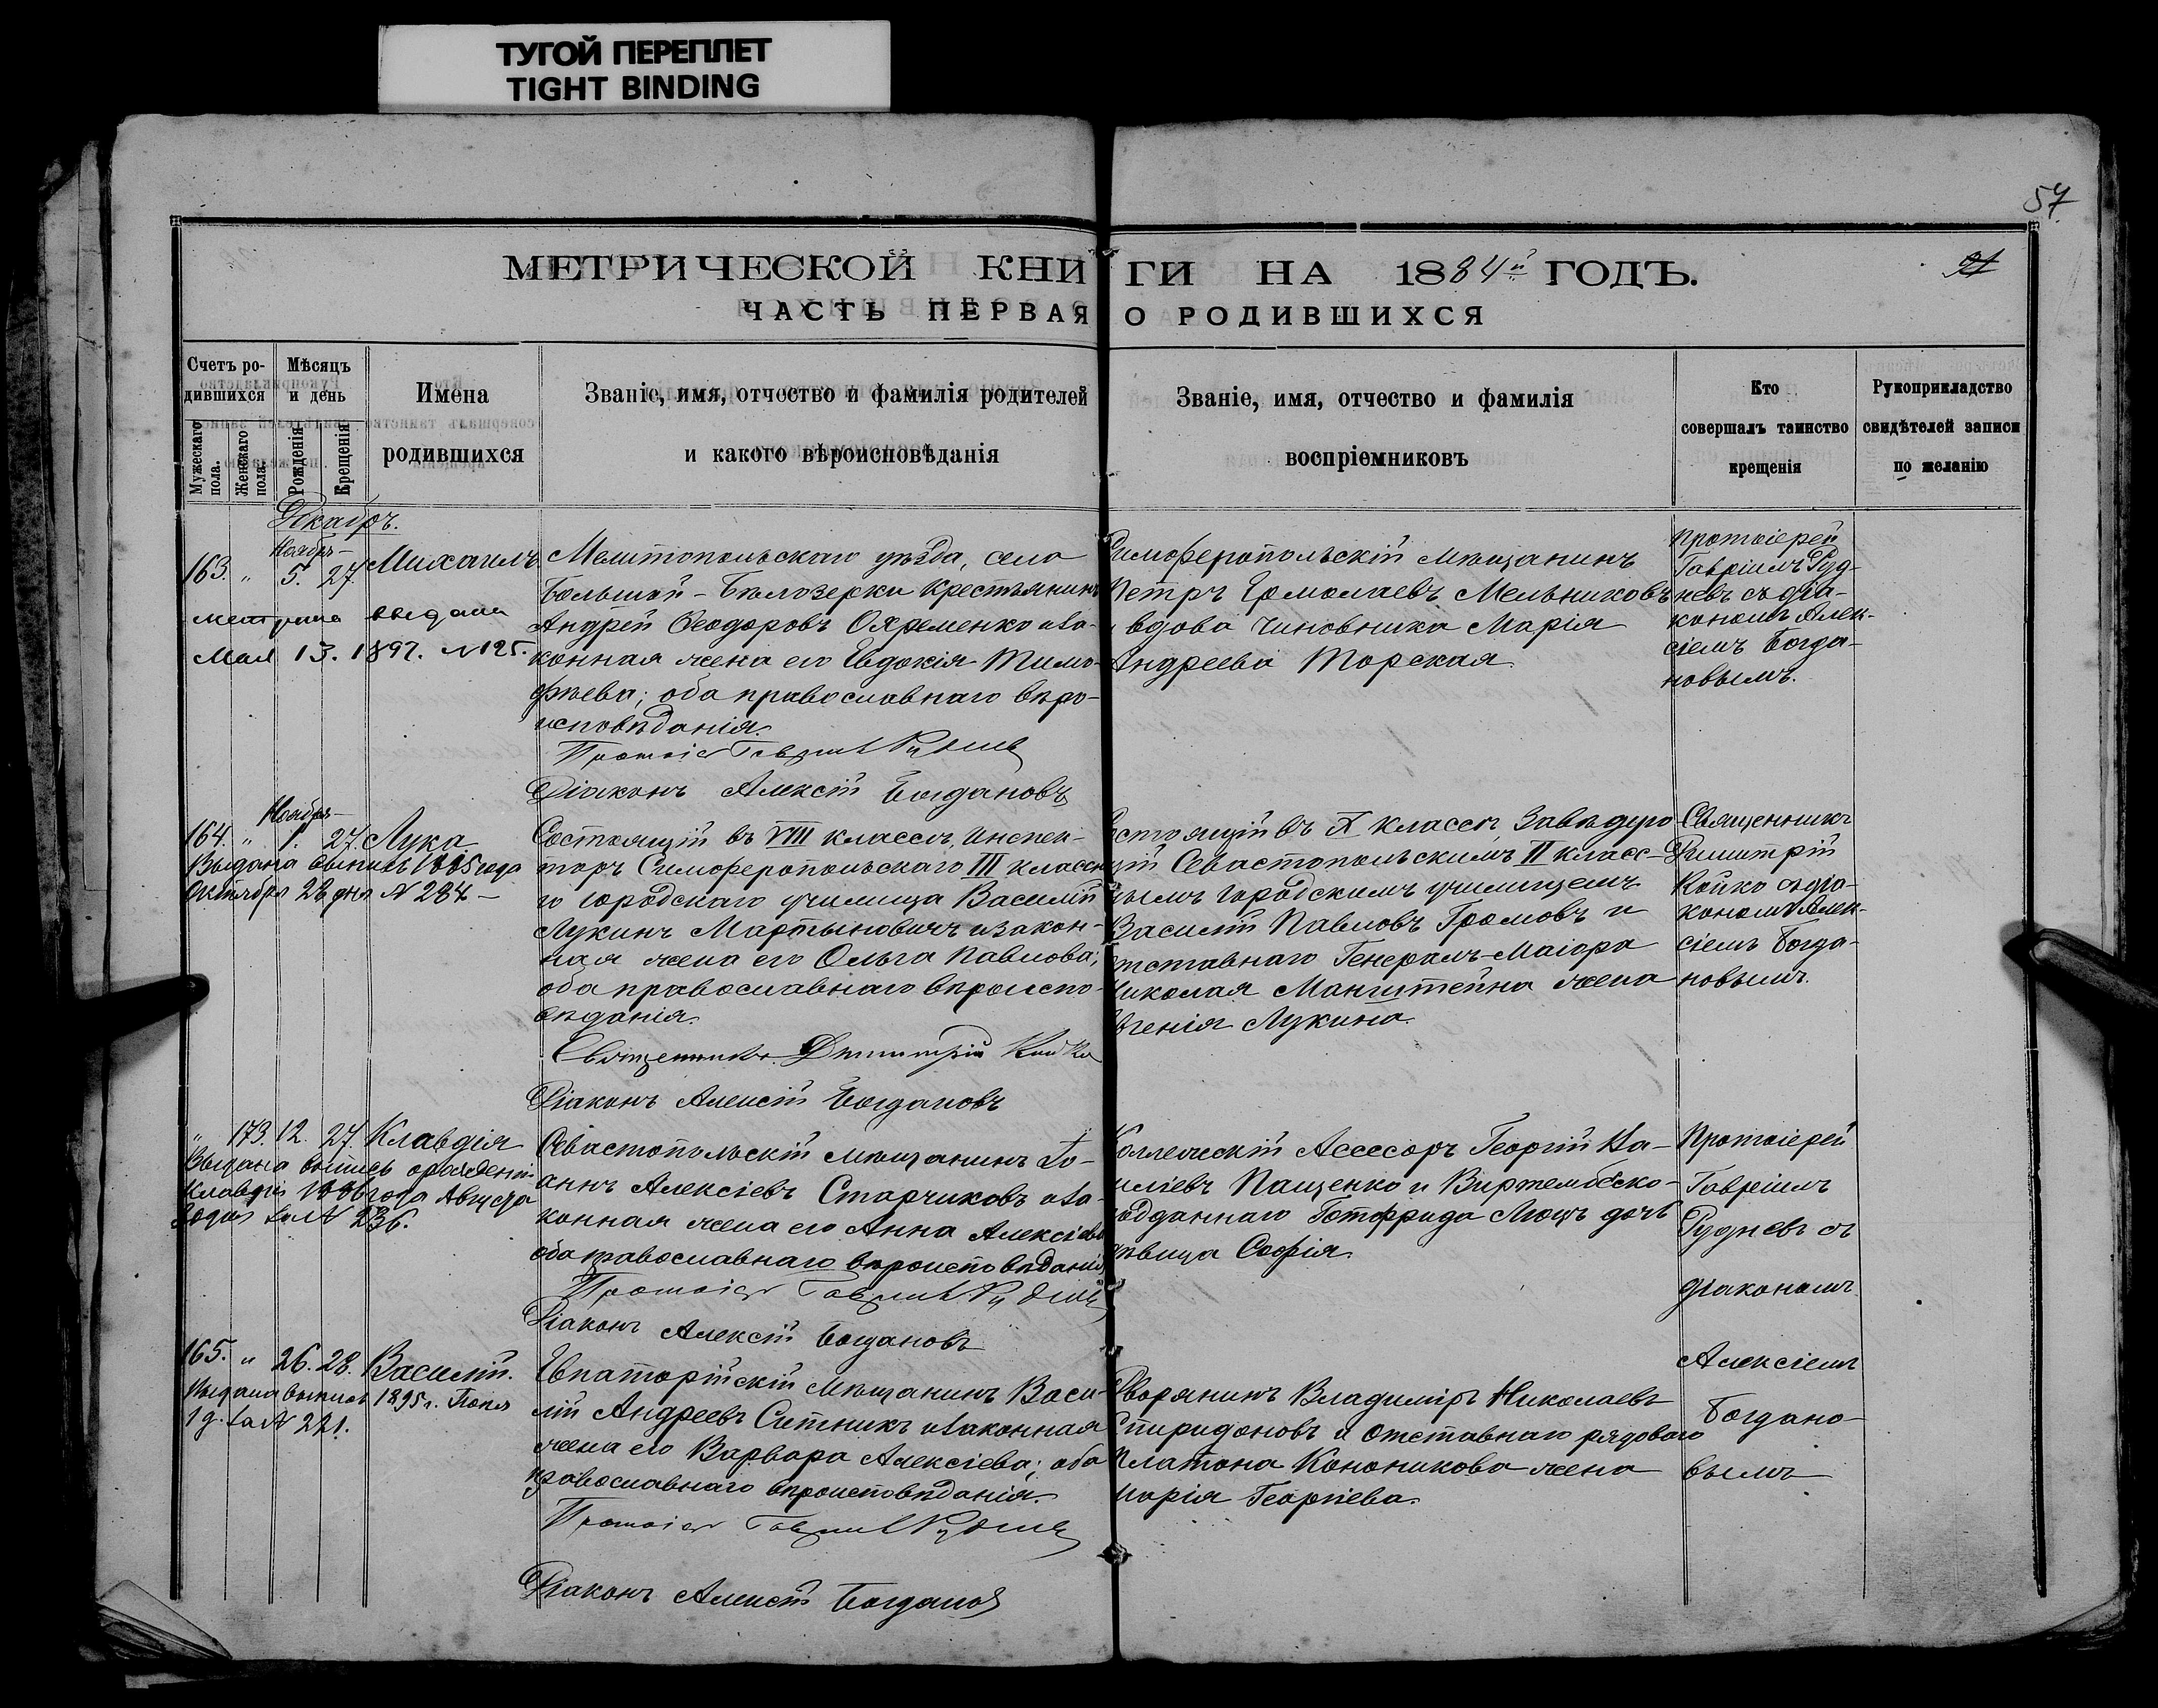 ТУГОЙ ПЕРЕПЛЕТ
TIGHT BINDING
57
МЕТРИЧЕСКОЙ КНИГИ НА 1884й ГОДЪ.
ЧАСТЬ ПЕРВАЯ О РОДИВШИХСЯ
Счетъ родившихся
Мужескаго пола.
Женскаго пола.
Мѣсяцъ и день
Рожденія
Крещенія
Имена
родившихся
Званіе, имя, отчество и фамилія родителей
и какого вѣроисповѣданія
Званіе, имя, отчество и фамилія
воспріемниковъ
Кто
совершалъ таинство
крещенія
Рукоприкладство
свидѣтелей записи
по желанію
Декабрь.
Ноябрь-
163. " 5. 27. Михаилъ
метрика выдана
Мая 13. 1897. №125.
Мелитопольскаго уѣзда, села
Большой-Бѣлозерки крестьянинъ
Андрей Ѳеодоровъ Охременко и за-
конная жена его Евдокія Тимо-
фѣева; оба православнаго вѣро-
исповѣданія.
Протоіер Гавріилъ Рудневъ
Діаконъ Алексій Богдановъ
Симферопольскій мѣщанинъ
Петръ Ермолаевъ Мельниковъ
и вдова чиновника Марія
Андреева Торская.
Протоіерей
Гавріилъ Руд-
невъ съ діа-
кономъ Алек-
сіемъ Богда-
новымъ.
Ноябрь-
164. " 1. 27. Лука
Выдана выпись 1885 года
Октября 28 дня № 284 -
Состоящій въ VIII классѣ, инспек-
торъ Симферопольскаго III классна-
го городскаго училища Василій
Лукинъ Мартыновичъ и закон-
ная жена его Ольга Павлова;
оба православнаго вѣроиспо-
вѣданія.
Священникъ Димитрій Койко
Діаконъ Алексій Богдановъ
Состоящій въ X классѣ, завѣдую-
щій Севастопольскимъ II класс-
нымъ городскимъ училищемъ
Василій Павловъ Громовъ и
отставнаго Генералъ-Маіора
Николая Манштейна жена
Евгенія Лукина.
Священникъ
Димитрій
Койко съ діа-
кономъ Алек-
сіемъ Богда-
новымъ.
" 173. 12. 27. Клавдія
Выдана выпись о рожденіи
Клавдіи 1886 года Августа
за № 236.
Севастопольскій мѣщанинъ Іо-
аннъ Алексіевъ Старчиковъ и за-
конная жена его Анна Алексіева
оба православнаго вѣроисповѣданія
Протоіер Гавріилъ Рудневъ
Діаконъ Алексій Богдановъ
Коллежскій Асессоръ Георгій Ва-
силіевъ Пащенко и Виртембско-
подданнаго Готфрида Люцъ дочь
дѣвица Софія.
Протоіерей
Гавріилъ
Рудневъ съ
діакономъ
Алексіемъ
Богдано-
вымъ
165. " 26. 28. Василій.
Выдана выпись 1895 г. Іюня
1 д. за № 221.
Евпаторійскій мѣщанинъ Васи-
лій Андреевъ Ситникъ и законная
жена его Варвара Алексіева; оба
православнаго вѣроисповѣданія.
Протоіер Гавріилъ Рудневъ
Діаконъ Алексій Богдановъ
Дворянинъ Владиміръ Николаевъ
Спиридоновъ и отставнаго рядоваго
Платона Кононикова жена
Марія Георгіева.